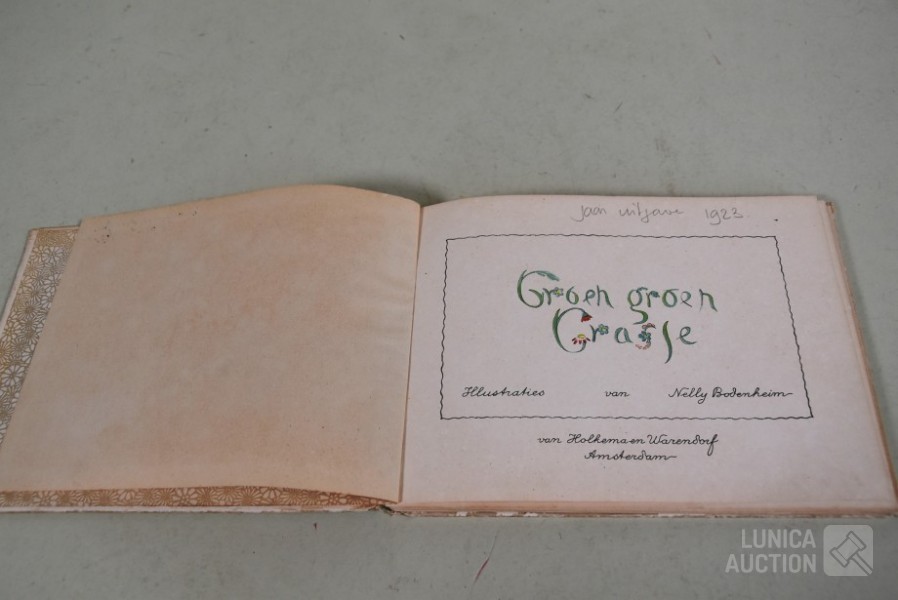 jaar uitgave 1923
Groen groen
Grasje
Illustraties van Nelly Bodenheim
van Holkema en Warendorf
Amsterdam
LUNICA
AUCTION